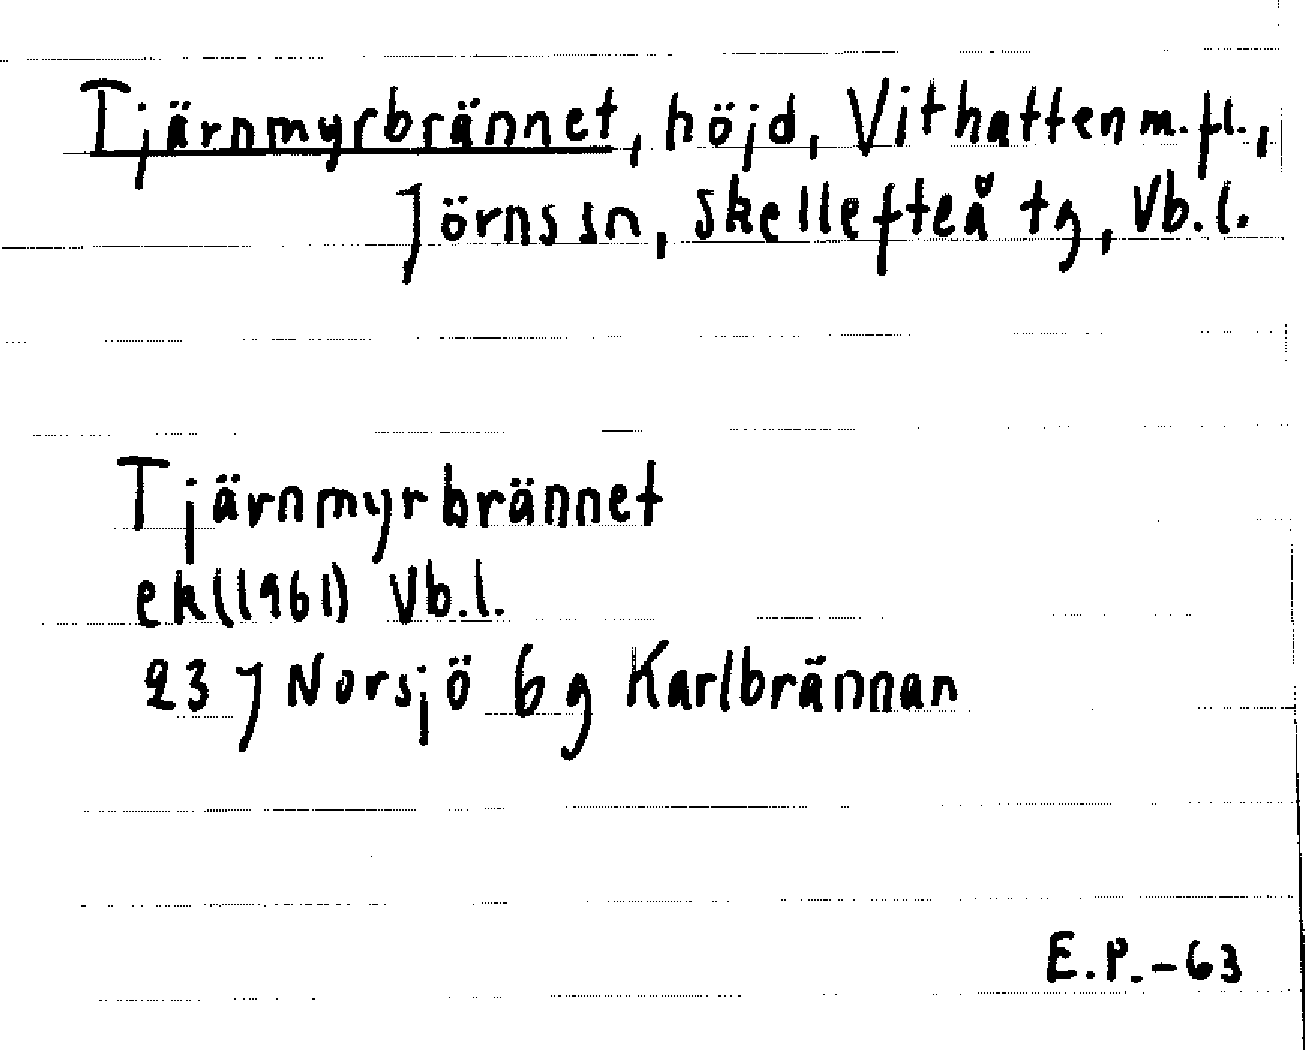 Tjärnmyrbrännet, höjd, Vithatten m.fl.,
Jörns sn, Skellefteå tg, Vb.l.
Tjärnmyrbrännet
ek(1961) Vb.l.
23 J Norsjö 6 g Karlbrännan
E.P.-63